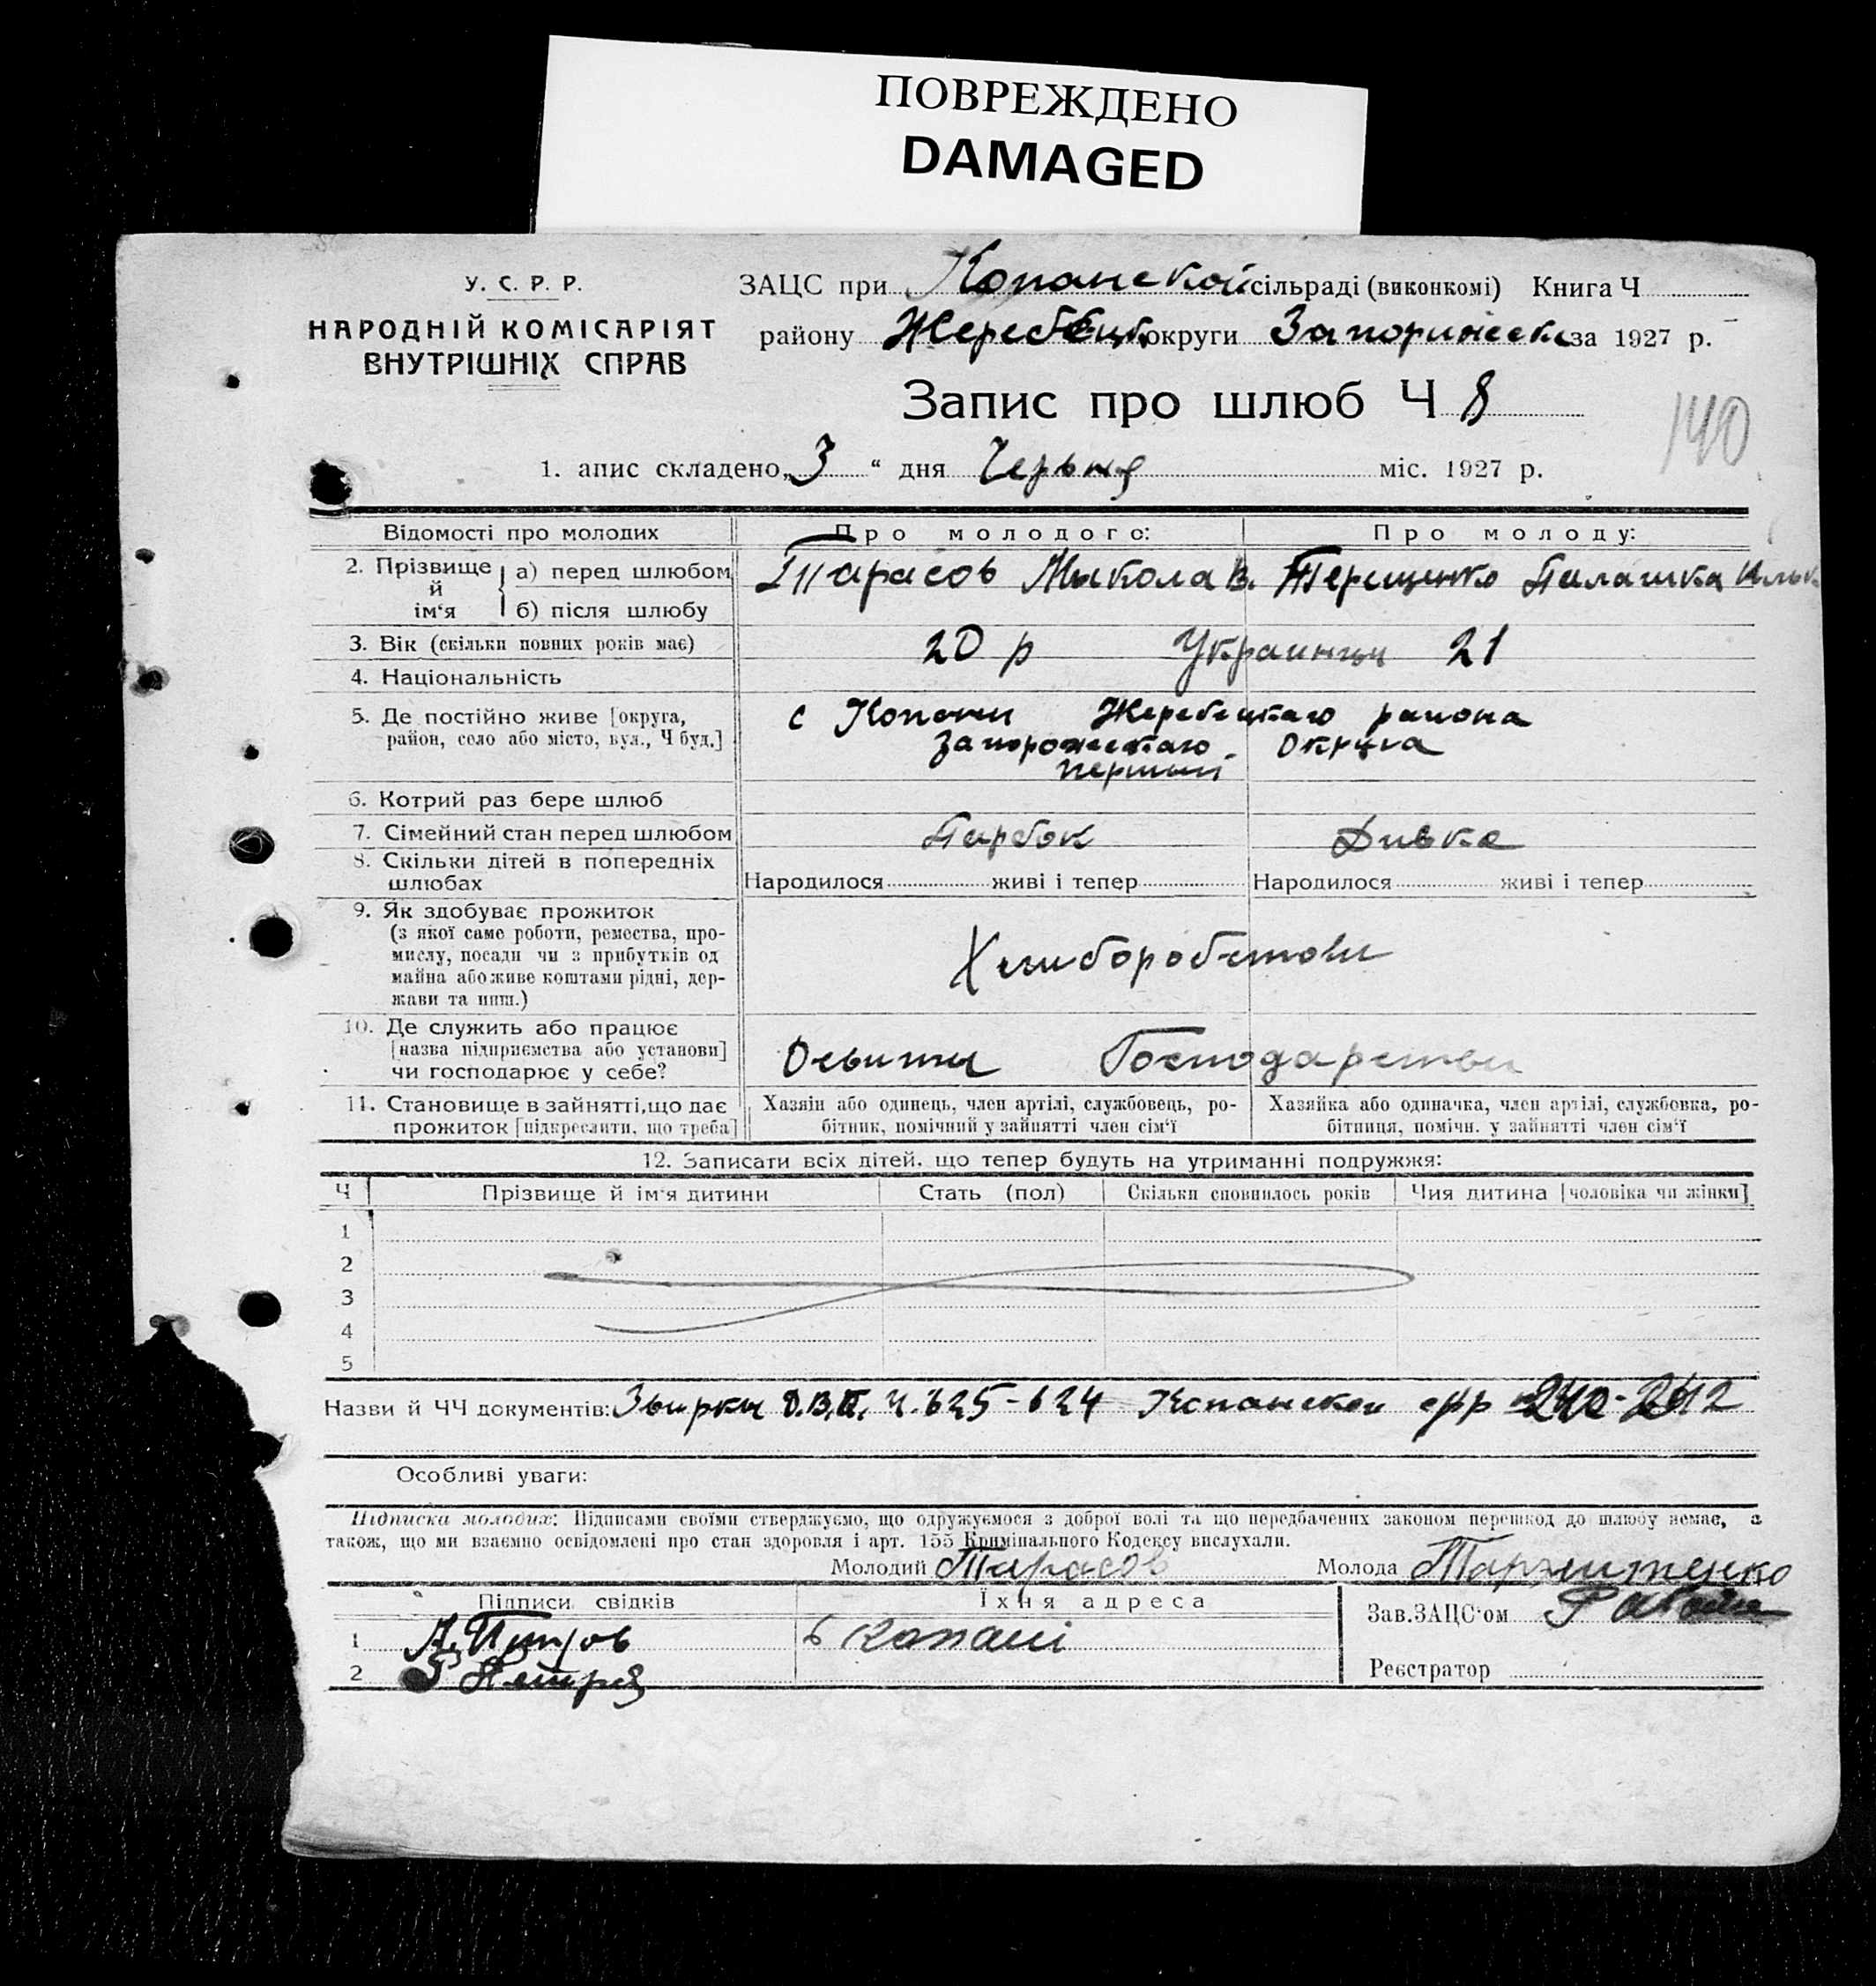 ПОВРЕЖДЕНО
DAMAGED
У. С. Р. Р.
НАРОДНІЙ КОМІСАРІЯТ
ВНУТРІШНІХ СПРАВ
ЗАЦС при Копанской сільраді (виконкомі) Книга Ч
району Жеребецьк округи Запорижск за 1927 р.
Запис про шлюб Ч 8
140
1. апис складено „3 “ дня Червня міс. 1927 р.
Відомості про молодих Про молодого: Про молоду:
2. Прізвище й ім‘я а) перед шлюбом Тарасов Мыкола В. Терещенко Палашка
б) після шлюбу
3. Вік (скільки повних років має) 20 р Украинцы 21
4. Національність
5. Де постійно живе [округа, район, село або місто, вул., Ч буд.] с Копани Жеребецкаго района
Запорожскаго Округа
першый
6. Котрий раз бере шлюб
7. Сімейний стан перед шлюбом Парбок Дивка
8. Скільки дітей в попередніх шлюбах Народилося живі і тепер Народилося живі і тепер
9. Як здобуває прожиток
(з якої саме роботи, ремества, про-
мислу, посади чи з прибутків од
майна або живе коштами рідні, дер-
жави та инш.)
10. Де служить або працює
[назва підприємства або установи]
чи господарює у себе? Господарстви
11. Становище в зайнятті, що дає
прожиток [підкреслити, що треба]
Хазяін або одинець, член артілі, службовець, ро-
бітник, помічний у зайнятті член сім‘ї
Хазяйка або одиначка, член артілі, службовка, ро-
бітниця, помічн. у зайнятті член сім‘ї
12. Записати всіх дітей, що тепер будуть на утриманні подружжя:
Ч Прізвище й ім‘я дитини Стать (пол) Скільки сповнилось років Чия дитина [чоловіка чи жінки]
1
2
3
4
5
Назви й ЧЧ документів: Ч. 625-624 Копанской 240-242
Особливі уваги:
Підписка молодих: Підписами своїми стверджуємо, що одружуємося з доброї волі та що передбачених законом перешкод до шлюбу немає, а
також, що ми взаємно освідомлені про стан здоровля і арт. 155 Кримінального Кодексу вислухали.
Молодий Тарасов Молода
Підписи свідків Їхня адреса Зав. ЗАЦС‘ом
1 Копані
2 Реєстратор